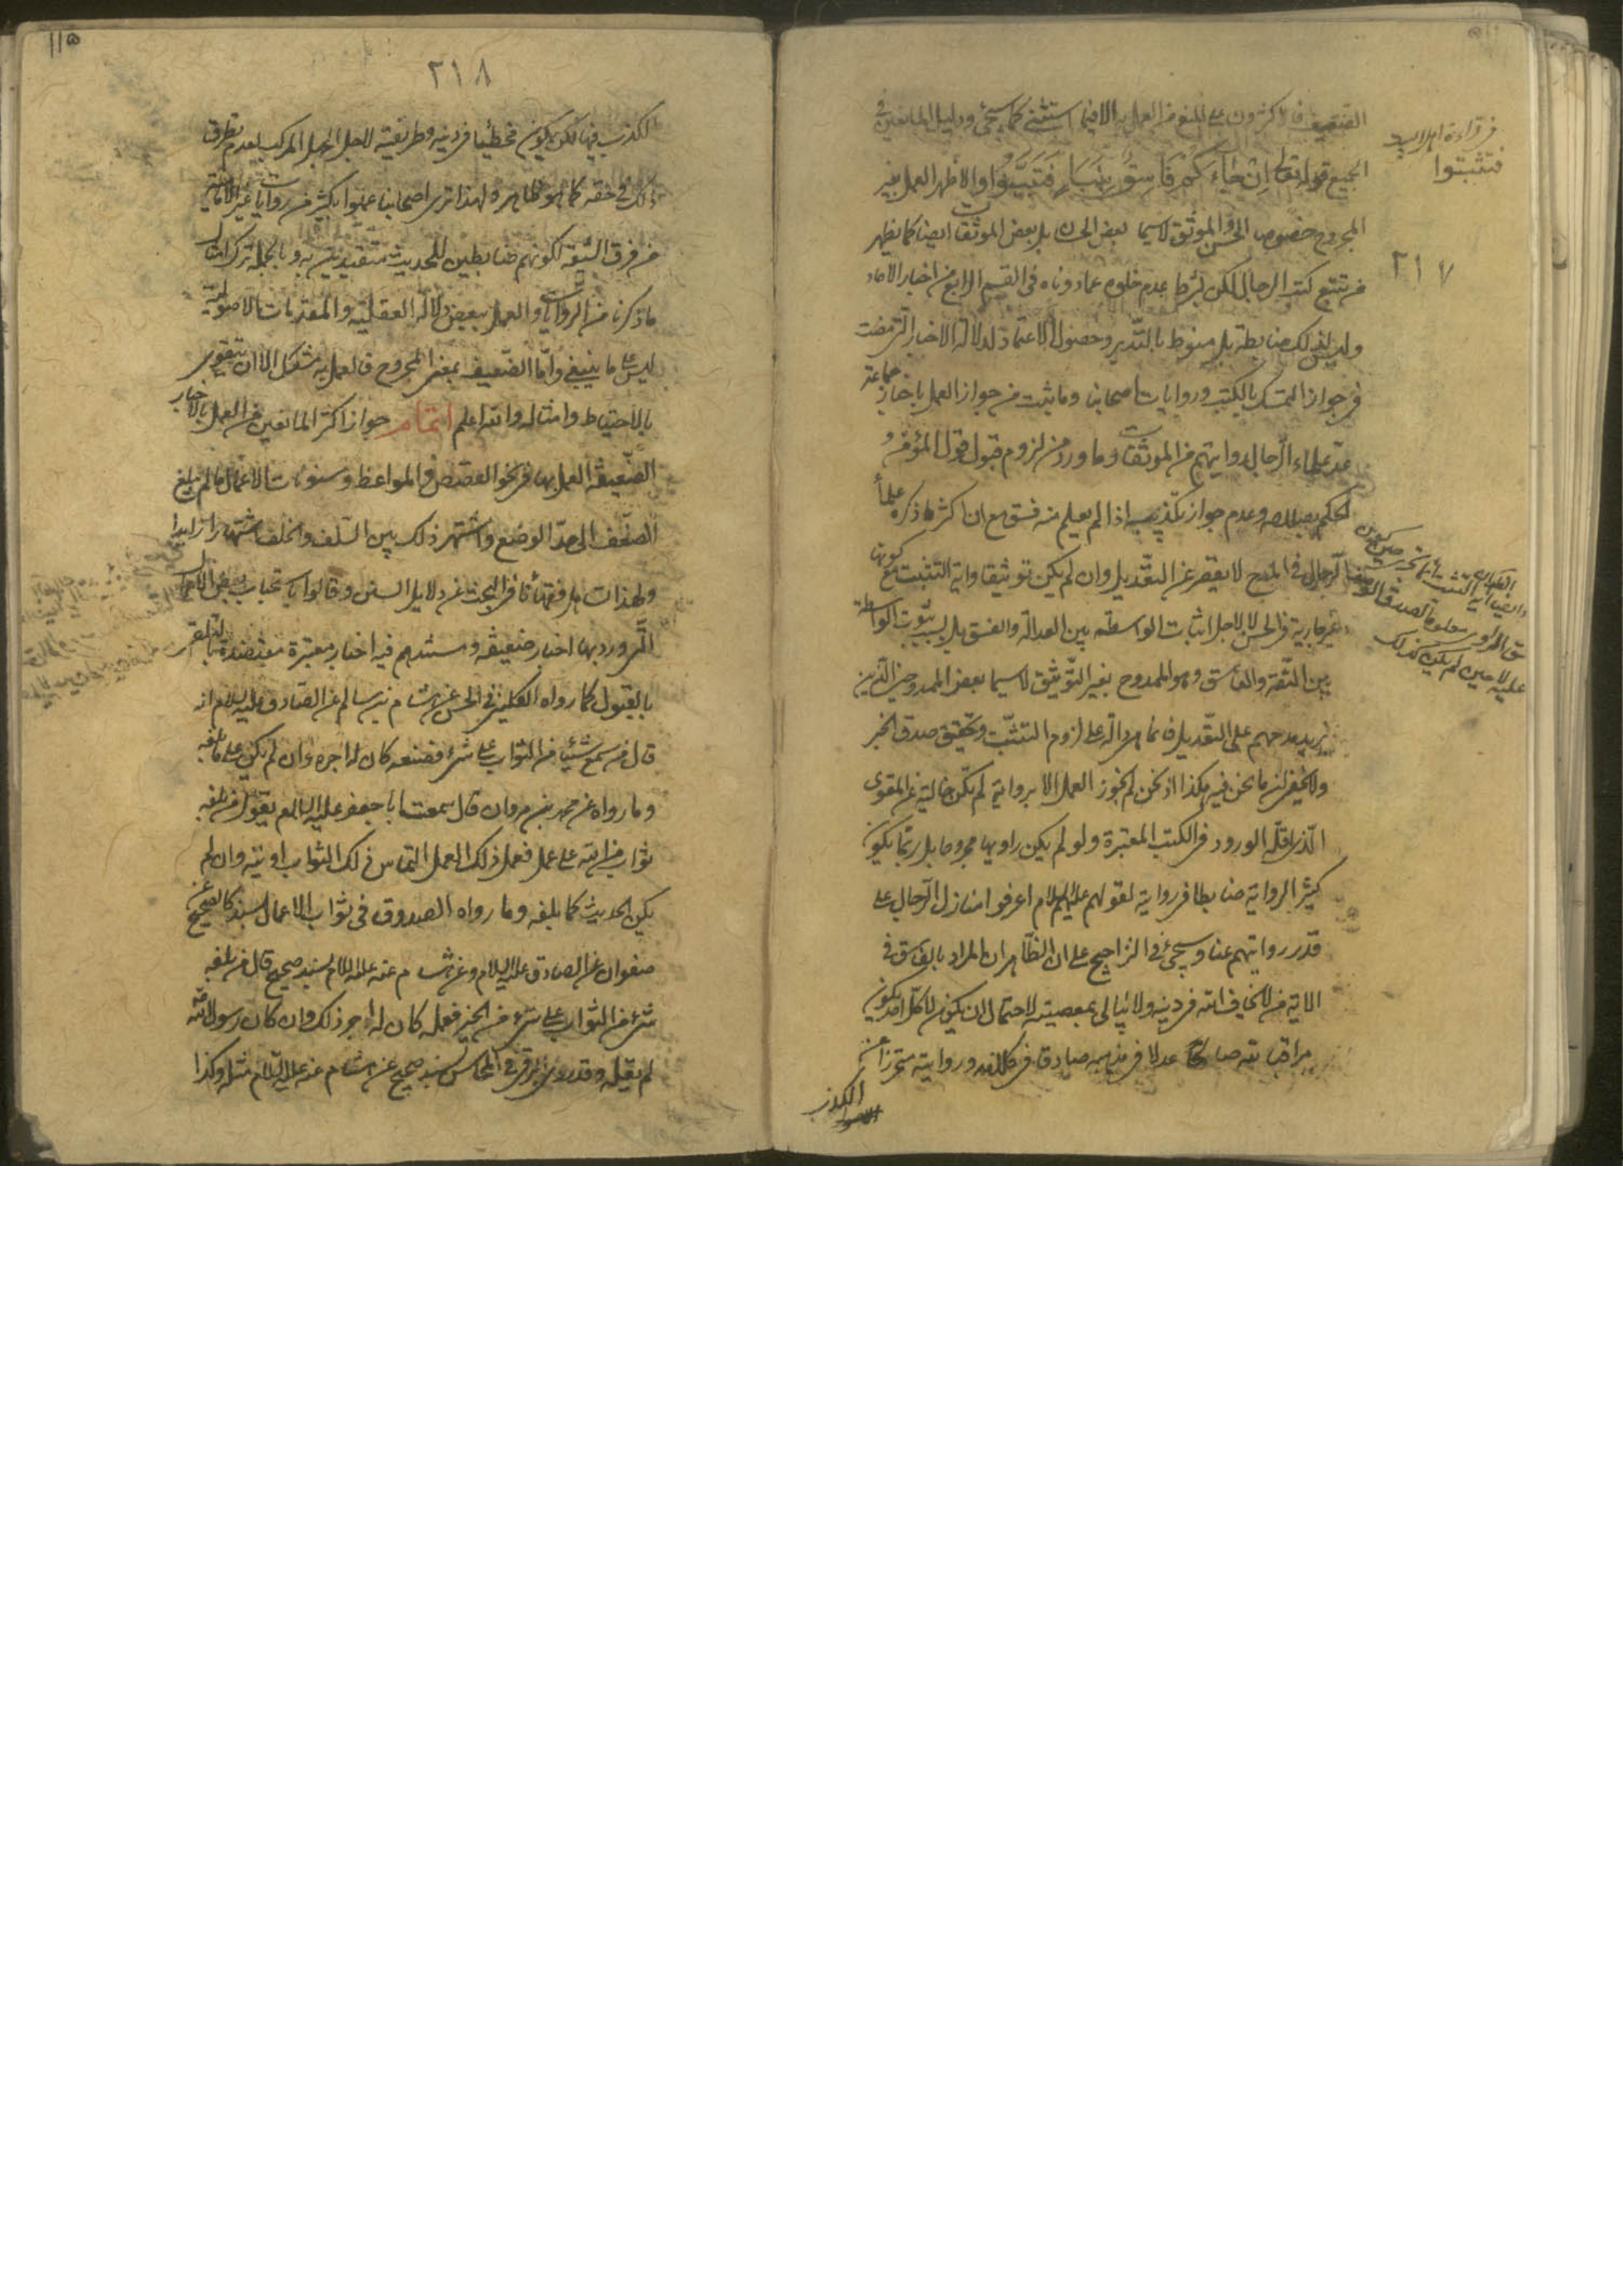 الضعيف فالاكثرون على المنع من العمل به الا فيما استثنى كما سيجئ ودليل المانعين في
الجميع قوله تعالى اِنْ جٰاءَكُمْ فٰاسِقٌ بِنَبَأٍ فَتَبَيَّنُوا والأظهر العمل بغير
المجروح خصوص الحسن والموثق لاسيما بعض الحسان بل بعض الموثقات ايضا كما يظهر
من تتبع كتب الرجال لكن بشرط عدم خلوه عما دوناه في القسم الرابع من اخبار الآحاد
وليس لذلك ضابطة بل منوط بالتدبر وحصول الاعتماد لدلالة الاخبار التي مضت
في جواز التمسك بالكتب وروايات اصحابنا وما ثبت من جواز العمل باخبار جماعة
عدّ علماء الرجال رواياتهم من الموثقات وما ورد من لزوم قبول قول المؤمن و
الحكم بصدقه وعدم جواز تكذيبه اذا لم يعلم منه فسق مع ان اكثر ما ذكره علماء
الرجال في المدح لا يقصر عن التعديل وان لم يكن توثيقا وآية التثبت مع كونها
غير جارية في الحسن لا لاجل اثبات الواسطة بين العدالة والفسق بل بسبب ثبوت الواسطة
بين الثقة والفاسق وهو الممدوح بغير التوثيق لاسيما بعض الممدوحين الذين
يزيد مدحهم على التعديل فانما هي دالة على لزوم التثبت وتحقق صدق الخبر
ولا يخفى ان ما نحن فيه هكذا اذ نحن لم نجوز العمل الا برواية لم تكن خالية عن المقوى
الذى اقله الورود في الكتب المعتبرة ولو لم يكن راويها مجروحا بل ربما يكون
كثير الرواية ضابطا في رواية لقولهم عليهم السلام اعرفوا منازل الرجال على
قدر رواياتهم عنا وسيجئ في التراجيح على ان الظاهر ان المراد بالفاسق في
الآية من لا يخاف الله في دينه ولا يبالى بمعصيته لاحتمال ان يكون لا كل احد يكون
مراقبا لله صالحا عدلا في مذهبه صادقا في كلامه وروايته متحرزا عن
الكذب
في قراءة اهل البيت
فتثبتوا
٢١٧
١١٥
٢١٨
الكذب فيها لكن يكون مخطئا في دينه وطريقته لاجل الجهل المركب لعدم تطرق
ذلك في حقه كما هو ظاهر ولهذا ترى اصحابنا عملوا بكثير من روايات غير الامامية
من فرق الشيعة لكونهم ضابطين للحديث متقيدين به وبالجملة ترك امثال
ما ذكرنا من الروايات والعمل ببعض دلالة العقلية والمقدمات الاصولية
ليس على ما ينبغي وامّا الضعيف بمعنى المجروح فالعمل به مشكل الا ان يتقوى
بالاحتياط وامثاله والله اعلم اتمام جواز اكثر المانعين من العمل بالاخبار
الضعيفة العمل بها في نحو القصص والمواعظ وسنونات الاعمال ما لم يبلغ
الضعف الى حدّ الوضع واشتهر ذلك بين السلف والخلف اشتهارا زايدا
ولهذا تساهل فقهاؤنا في البحث عن دلايل السنن وقالوا باستحباب بعض الاعمال
التي ورد بها اخبار ضعيفة ومستندهم فيه اخبار معتبرة معتضدة بالتلقى
بالقبول كما رواه الكليني في الحسن عن هشام بن سالم عن الصادق عليه السلام انه
قال من سمع شيئا من الثواب على شئ فصنعه كان له اجره وان لم يكن على ما بلغه
وما رواه عن محمد بن مروان قال سمعت ابا جعفر عليه السلام يقول من بلغه
ثواب من الله على عمل فعمل ذلك العمل التماس ذلك الثواب اوتيه وان لم
يكن الحديث كما بلغه وما رواه الصدوق في ثواب الاعمال بسند كالصحيح عن
صفوان عن الصادق عليه السلام وعن هشام عنه عليه السلام بسند صحيح قال من بلغه
شئ من الثواب على شئ من الخير فعمله كان له اجر ذلك وان كان رسول الله
لم يقله وقد روى البرقي في المحاسن بسند صحيح عن هشام عنه عليه السلام مثله وكذا